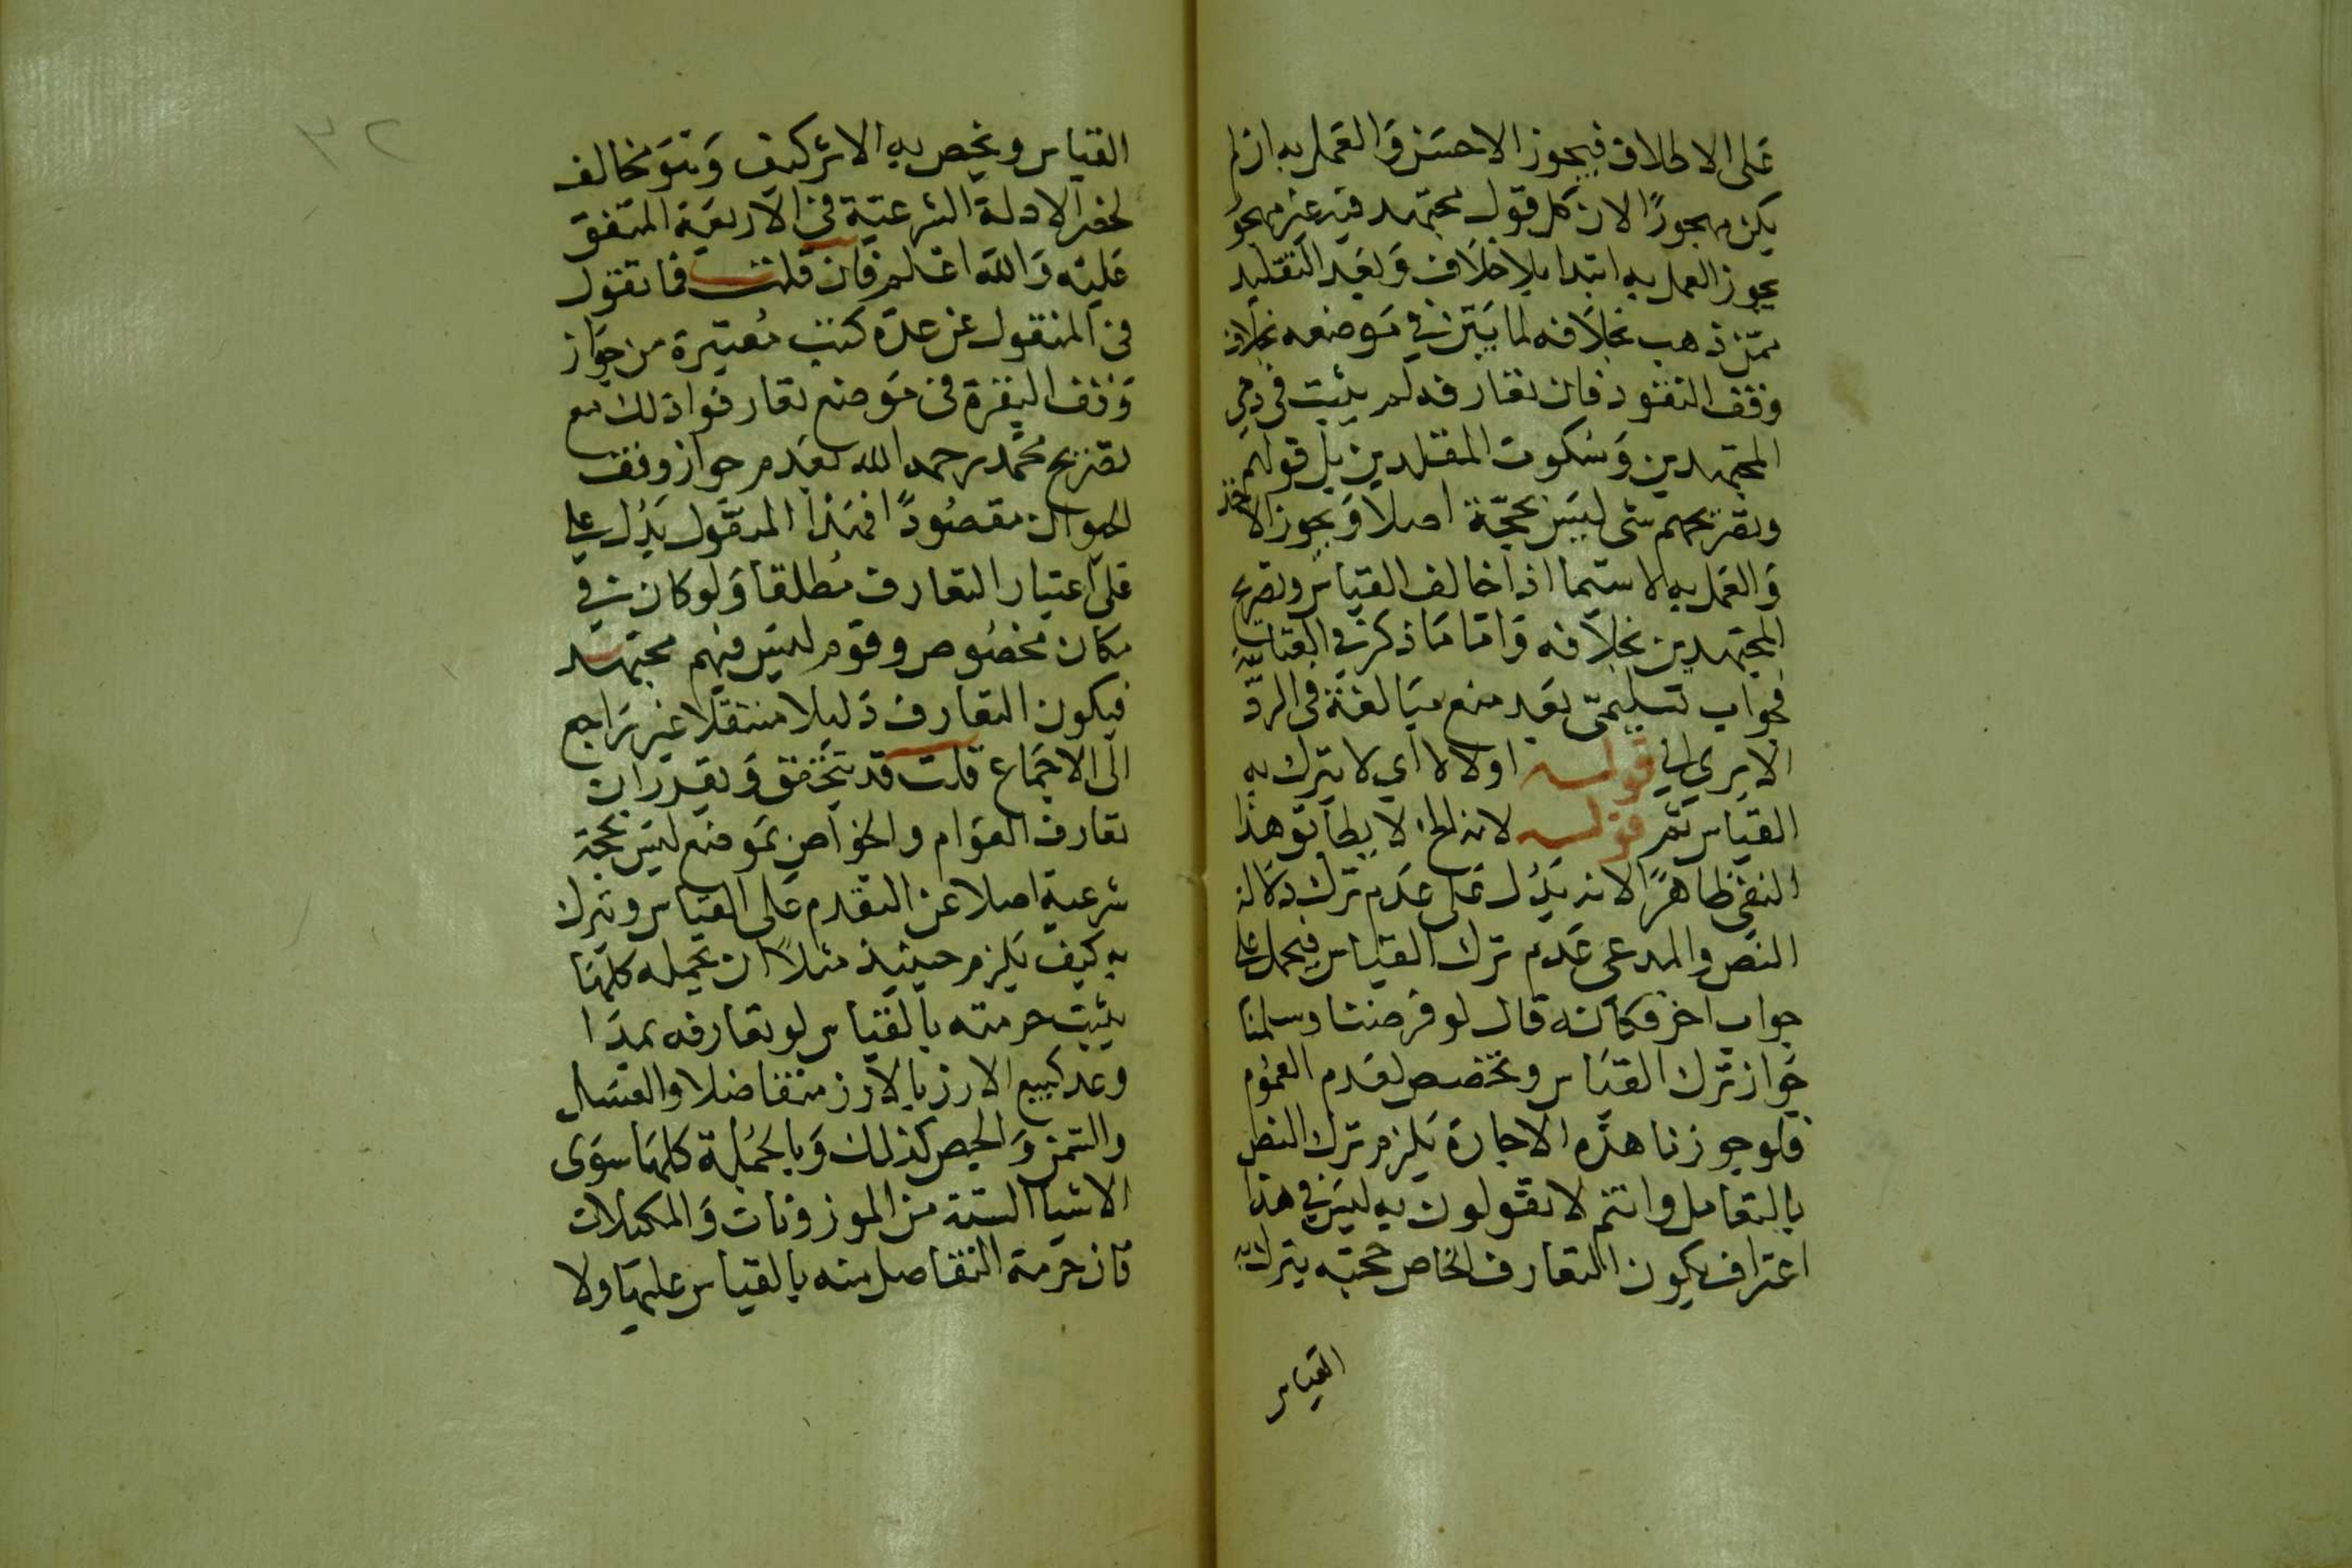 على الاطلاق فيجوز الاحسن والعمل به ان لم
يكن مهجورًا لان كل قول مجتهد فيه غير مهجو
يجوز العمل به ابتدا بلا خلاف وبعد التقليد
ممن ذهب بخلافه لما بين في موضعه بخلاف
وقف النقود فان تعارفه لم يثبت في زمن
المجتهدين وسكوت المقلدين بل قولهم
وتصريحهم شى ليس بحجة اصلا ويجوز الاخذ
والعمل به لا سيما اذا خالف القياس وتصريح
المجتهدين بخلافه واما ما ذكر في
فجواب تسليمى بعد منع مبالغة في الردّ
الا يرى الى قوله اولا لا اي لا يترك به
القياس ثم قوله لانه الخ لا يطابق هذا
النفى ظاهرًا لانه يدل على عدم ترك دلالة
النص والمدعى عدم ترك القياس فيحمل على
جواب اخر فكانه قال لو فرضنا وسلمنا
جواز ترك القياس وتخصص لعدم العموم
فلو جوزنا هذه الاجارة يلزم ترك النص
بالتعامل وانتم لا تقولون به ليس في هذا
اعتراف بكون التعارف الخاص حجة يترك به
القياس
القياس ويخص به الاثر كيف وهو مخالف
لحصر الادلة الشرعية في الاربعة المتفق
عليه والله اعلم فان قلت فما تقول
في المنقول عن عدة كتب معتبرة من جواز
وقف البقرة في موضع تعارفوا ذلك مع
تصريح محمد رحمه الله بعدم جواز وقف
الحيوان مقصودًا فهذا المنقول يدل على
على اعتبار التعارف مطلقا ولو كان في
مكان مخصوص وقوم ليس فيهم مجتهد
فيكون التعارف دليلا مستقلا غير راجع
الى الاجماع قلت قد تحقق وتقرر ان
تعارف العوام والخواص بموضع ليس بحجة
شرعية اصلا عن التقدم على القياس وتترك
به كيف يلزم حينيذ مثلاً ان يحل كلما
يثبت حرمته بالقياس لو تعارفه بلدا
وعد كبيع الارز بالارز متفاضلا والعسل
والسمن والحمص كذلك وبالجملة كلما سوى
الاشيا الستة من الموزونات والمكيلات
فان حرمة التفاضل منه بالقياس عليها ولا
٣٢